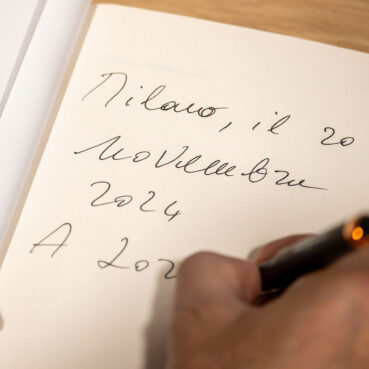 Milano, il 20
novembre
2024
A